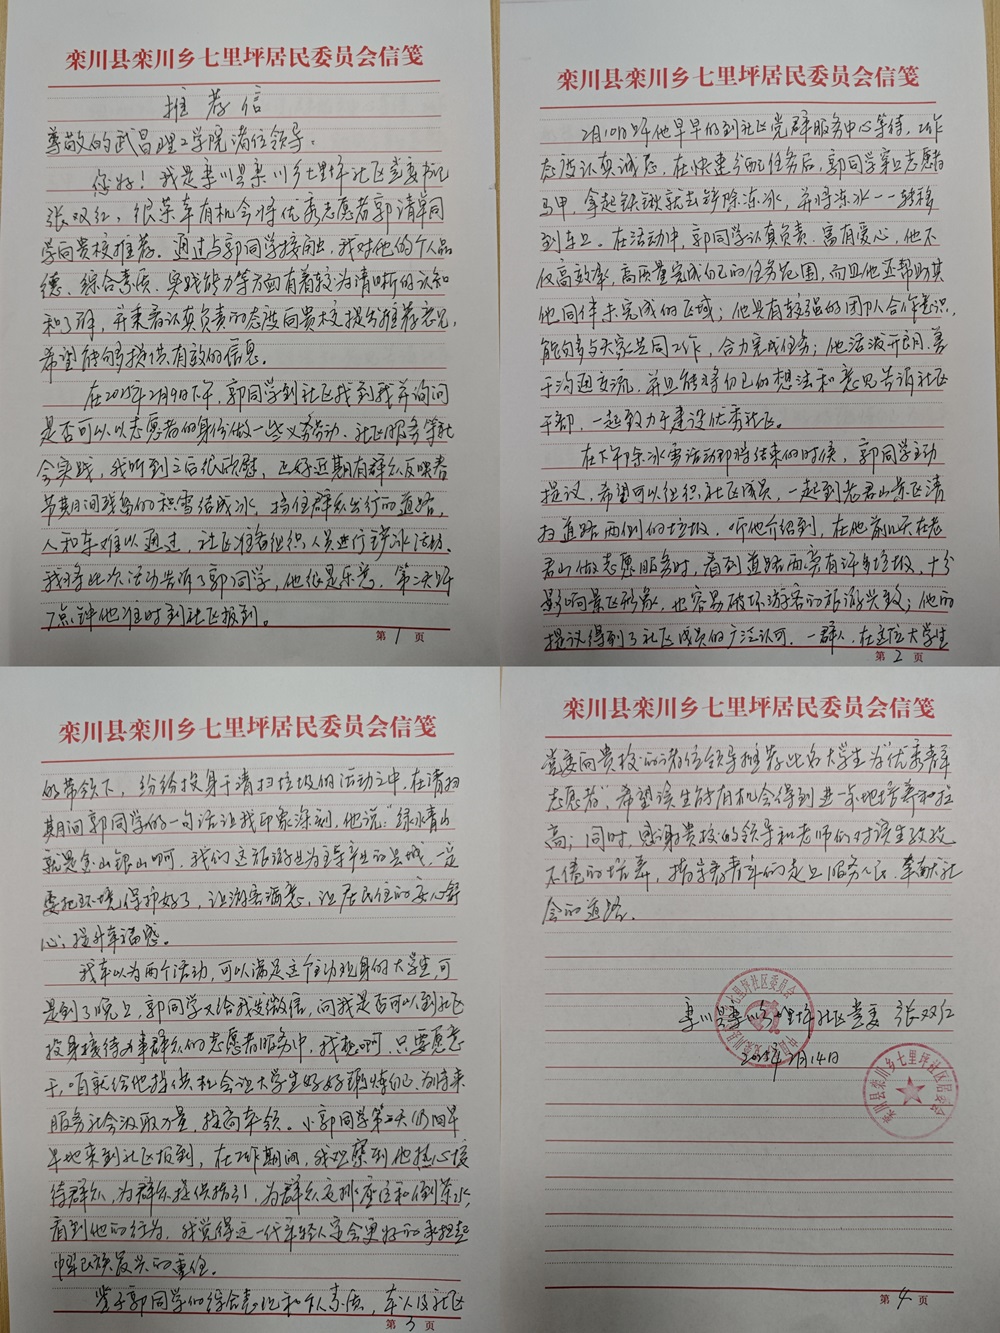 栾川县栾川乡七里坪居民委员会信笺
推荐信
尊敬的武昌理工学院诸位领导：
您好！我是栾川县栾川乡七里坪社区党委书记
张双红，很荣幸有机会将优秀志愿者郭清单同
学向贵校推荐。通过与郭同学接触，我对他的个人品
德、综合素质、实践能力等方面有着较为清晰的认知
和了解，并秉着认真负责的态度向贵校提出推荐意见，
希望能够提供有效的信息。
在2025年2月9日下午，郭同学到社区找到我并询问
是否可以以志愿者的身份做一些义务劳动、社区服务等社
会实践，我听到之后很欣慰，正好近期有群众反映春
节期间残留的积雪结成冰，挡住群众出行的道路，
人和车难以通过，社区准备组织人员进行铲冰活动。
我将此次活动告诉了郭同学，他很是乐意，第二天上午
7点钟他准时到社区报到。
第1页
栾川县栾川乡七里坪居民委员会信笺
2月10日上午他早早的到社区党群服务中心等待，工作
态度认真诚恳，在快速分配任务后，郭同学穿上志愿者
马甲，拿起铁锹就去铲除冻冰，并将冻冰一一转移
到车上。在活动中，郭同学认真负责、富有爱心，他不
仅高效率，高质量完成自己的任务范围，而且他还帮助其
他同伴未完成的区域；他具有较强的团队合作意识，
能够与大家共同工作，合力完成任务；他活泼开朗、善
于沟通交流，并且能将自己的想法和意见告诉社区
干部，一起致力于建设优秀社区。
在下午除冰雪活动即将结束的时候，郭同学主动
提议，希望可以组织社区成员，一起到老君山景区清
扫道路两侧的垃圾，听他介绍到，在他前几天在老
君山做志愿服务时，看到道路两旁有许多垃圾，十分
影响景区形象，也容易破坏游客的旅游兴致；他的
提议得到了社区成员的广泛认可。一群人，在这位大学生
第2页
栾川县栾川乡七里坪居民委员会信笺
的带领下，纷纷投身于清扫垃圾的活动之中，在清扫
期间郭同学的一句话让我印象深刻，他说：“绿水青山
就是金山银山啊，我们这旅游业为主导产业的县城，一定
要把环境保护好了，让游客满意，让居民住的安心舒
心；提升幸福感。
我本以为两个活动，可以满足这个主动现身的大学生，可
是到了晚上，郭同学又给我发微信，问我是否可以到社区
投身接待办事群众的志愿者服务中，我想啊，只要愿意
干，咱就给他提供机会让大学生好好锻炼自己，为将来
服务社会汲取力量，提高本领。小郭同学第二天仍旧早
早地来到社区报到，在工作期间，我观察到他热心接
待群众，为群众提供指引，为群众安排座位和倒茶水，
看到他的行为，我觉得这一代年轻人定会更好的承担起
中华民族复兴的重任。
鉴于郭同学的综合表现和个人素质，本人及社区
第3页
栾川县栾川乡七里坪居民委员会信笺
党委向贵校的诸位领导推荐此名大学生为“优秀青年
志愿者”，希望该生能有机会得到进一步地培养和拉
高；同时，感谢贵校的领导和老师们对该生孜孜
不倦的培养，指导着青年们走上服务人民、奉献社
会的道路。
栾川县栾川乡七里坪社区党委 张双红
2025年2月14日
栾川县栾川乡七里坪社区居委会
第4页